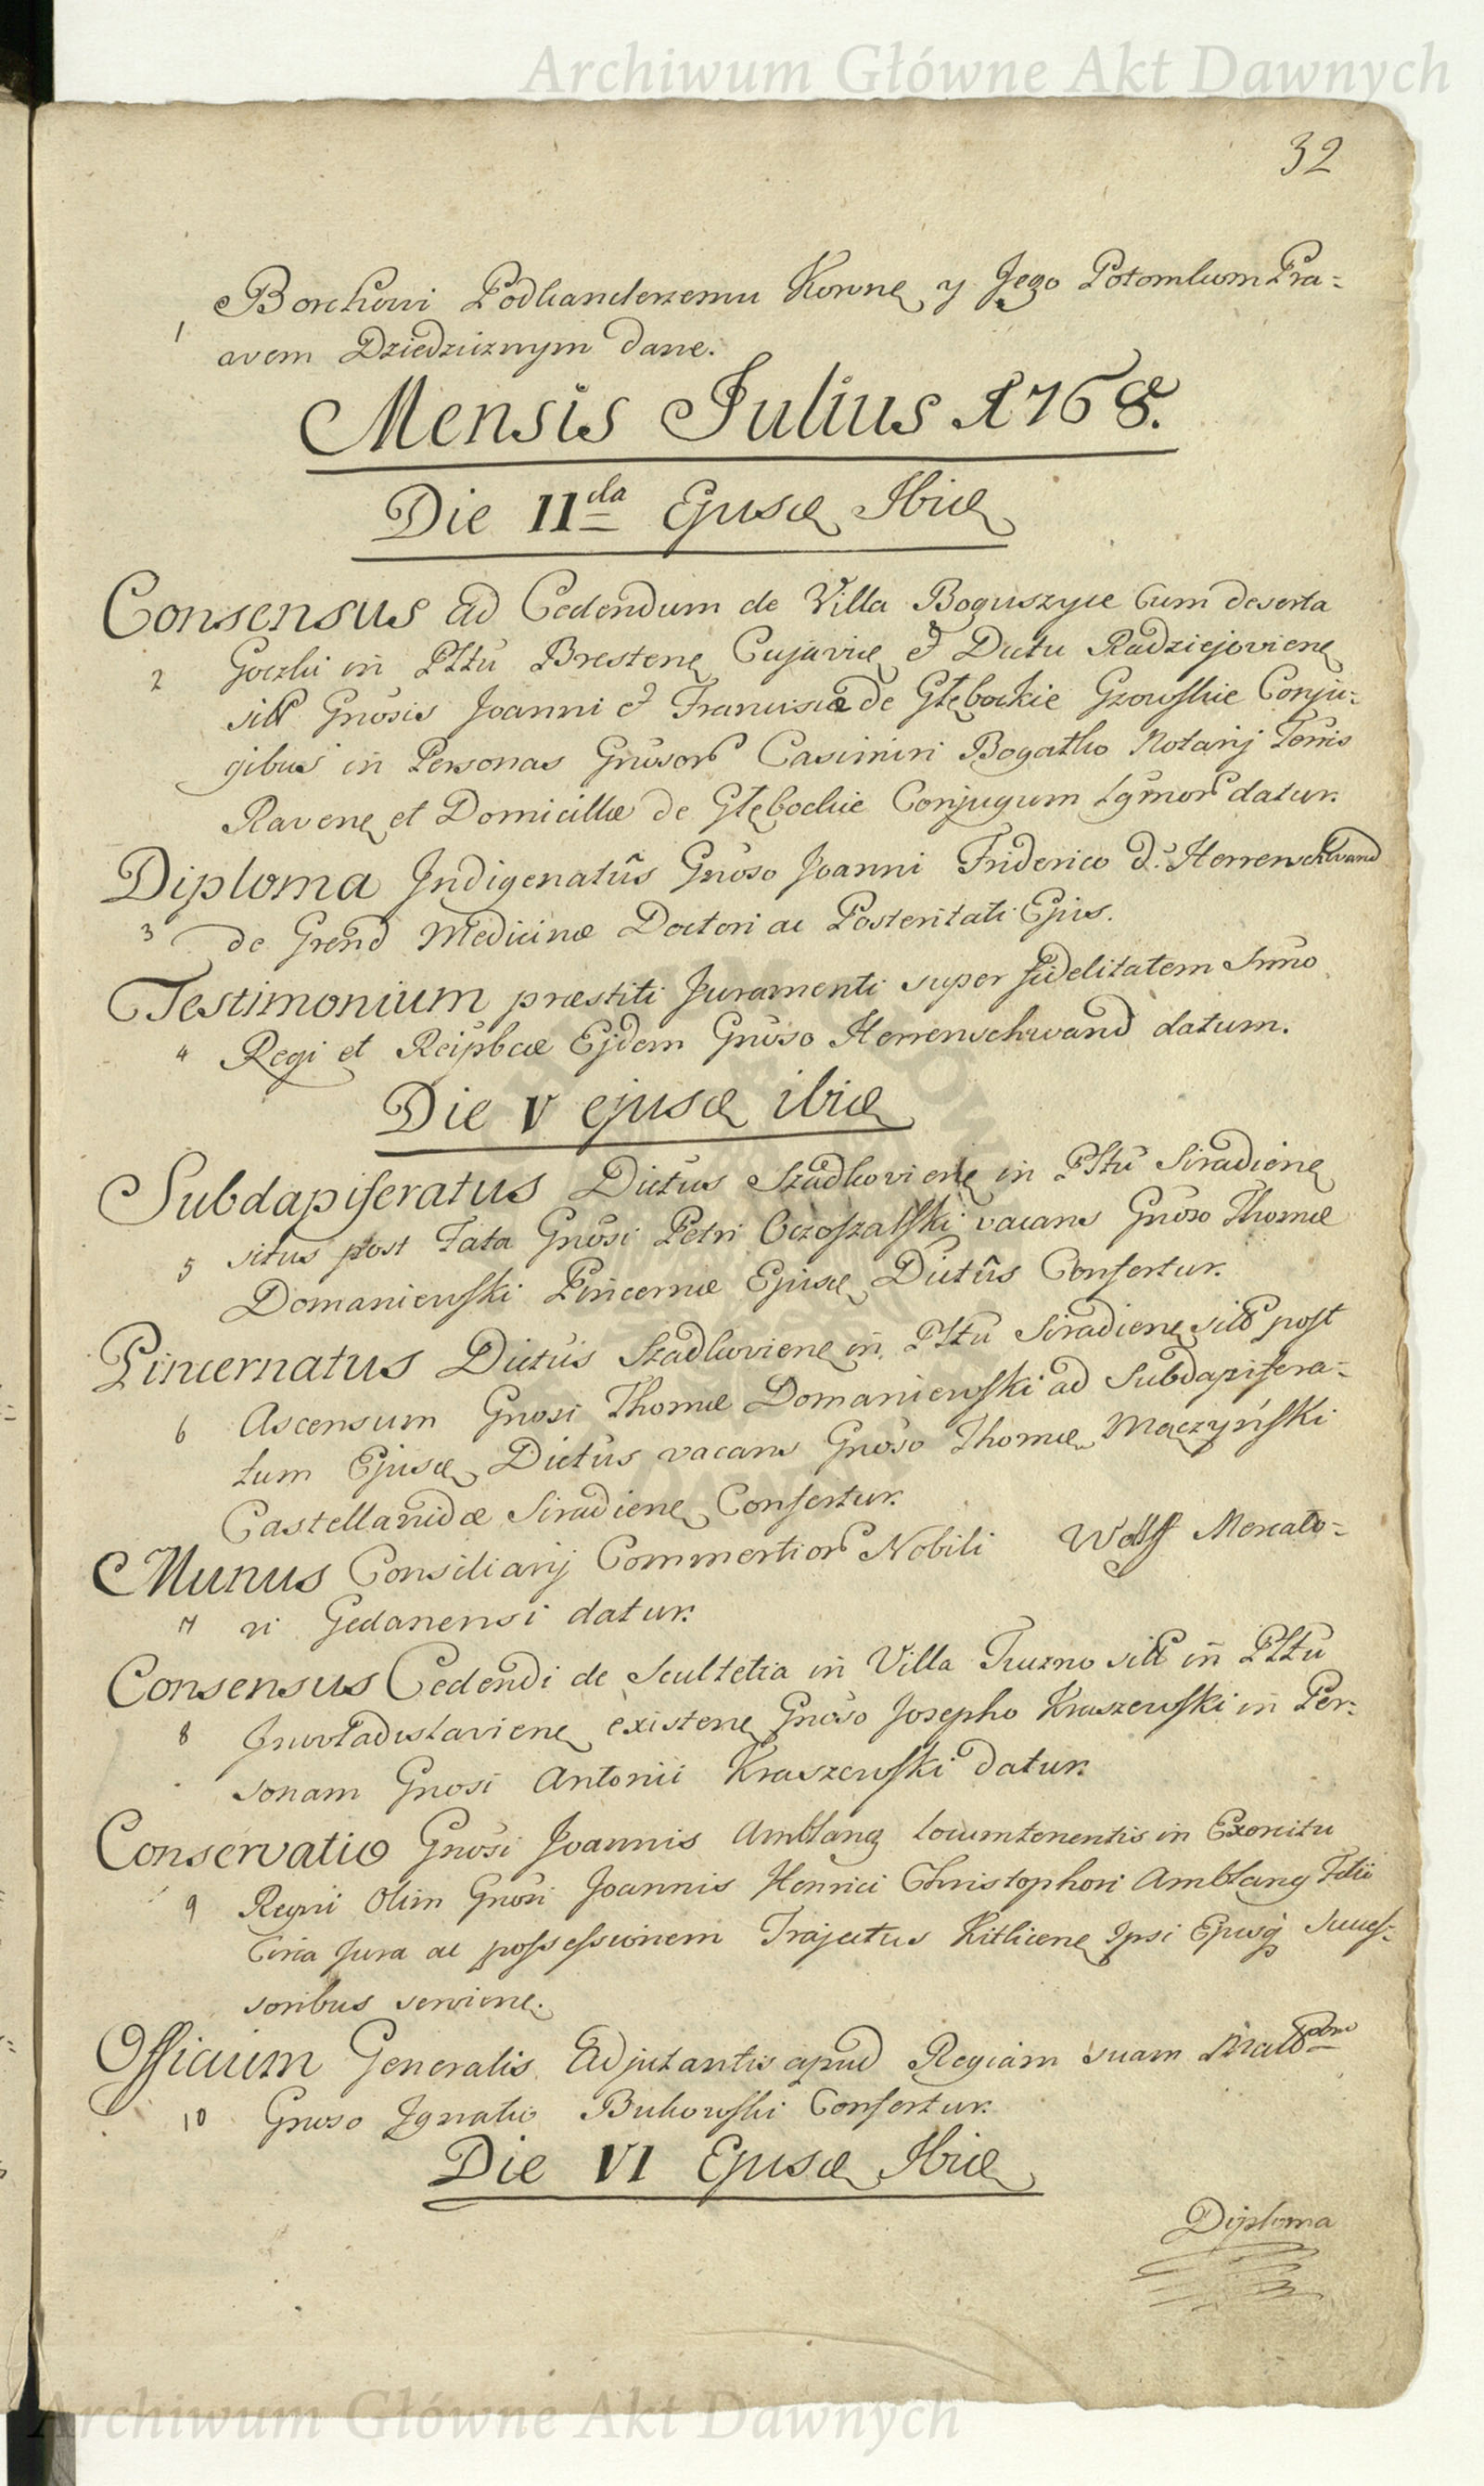 Archiwum Główne Akt Dawnych
32
Borchowi Podkanclerzemu Koronnę y Jego Potomkom Pra-
1 awem Dziedzicznym dane.
Mensis Julius 1768.
Die II da Ejusdę Ibidę
Consensus ad Cedendum de Villa Boguszyce Cum deserta
2 Goczki in Pltu Brestenę Cujaviæ et Dictu Radziejovienę
Gnosis Joanni et Franciscæ de Głębockie Gzowskie Conju-
gibus in Personas Gnosor Casimiri Bogatko Notarij Terris
Ravenę et Domicillæ de Głębockie Conjugum Lgmor datur.
Diploma Indigenatûs Gnoso Joanni Friderico d. Herrenschwand
3 de Grend Medicinæ Doctori ac Posteritati Ejus.
Testimonium præstiti Juramenti super fidelitatem Srmo
4 Regi et Reipbcæ Ejdem Gnoso Herrenschwand datum.
Die V ejusdę ibidę
Subdapiferatus Dictus Szadkovienę in Pltu Siradienę
5 situs post Fata Gnosi Petri vacans Gnoso Thomæ
Domaniewski Pincernæ Ejusdę Dictûs Confertur.
Pincernatus Dictus Szadkovienę in Pltu Siradienę post
6 Ascensum Gnosi Thomæ Domaniewski ad Subdapifera-
tum Ejusdę Dictûs vacans Gnoso Thomæ Mączyński
Castellanidæ Siradienę Confertur.
Munus Consiliarij Commertior Nobili Wolff Mercato-
7 ri Gedanensi datur.
Consensus Cedendi de Scultetia in Villa in Pltu
8 Inowładislavienę existenę Gnoso Josepho Kraszewski in Per-
sonam Gnosi Antonii Kraszewski datur.
Conservatio Gnosi Joannis Amblang Locumtenentis in Exercitu
9 Regni Olim Gnosi Joannis Henrici Christophori Amblang Filii
Circa Jura ac possessionem Trajectus Kitlicenę Ipsi Ejusq Succes-
soribus servienę.
Officium Generalis Adjutantis apud Regiam suam
10 Gnoso Ignatio Bukowski Confertur.
Die VI Ejusdę Ibidę
Diploma
Archiwum Główne Akt Dawnych